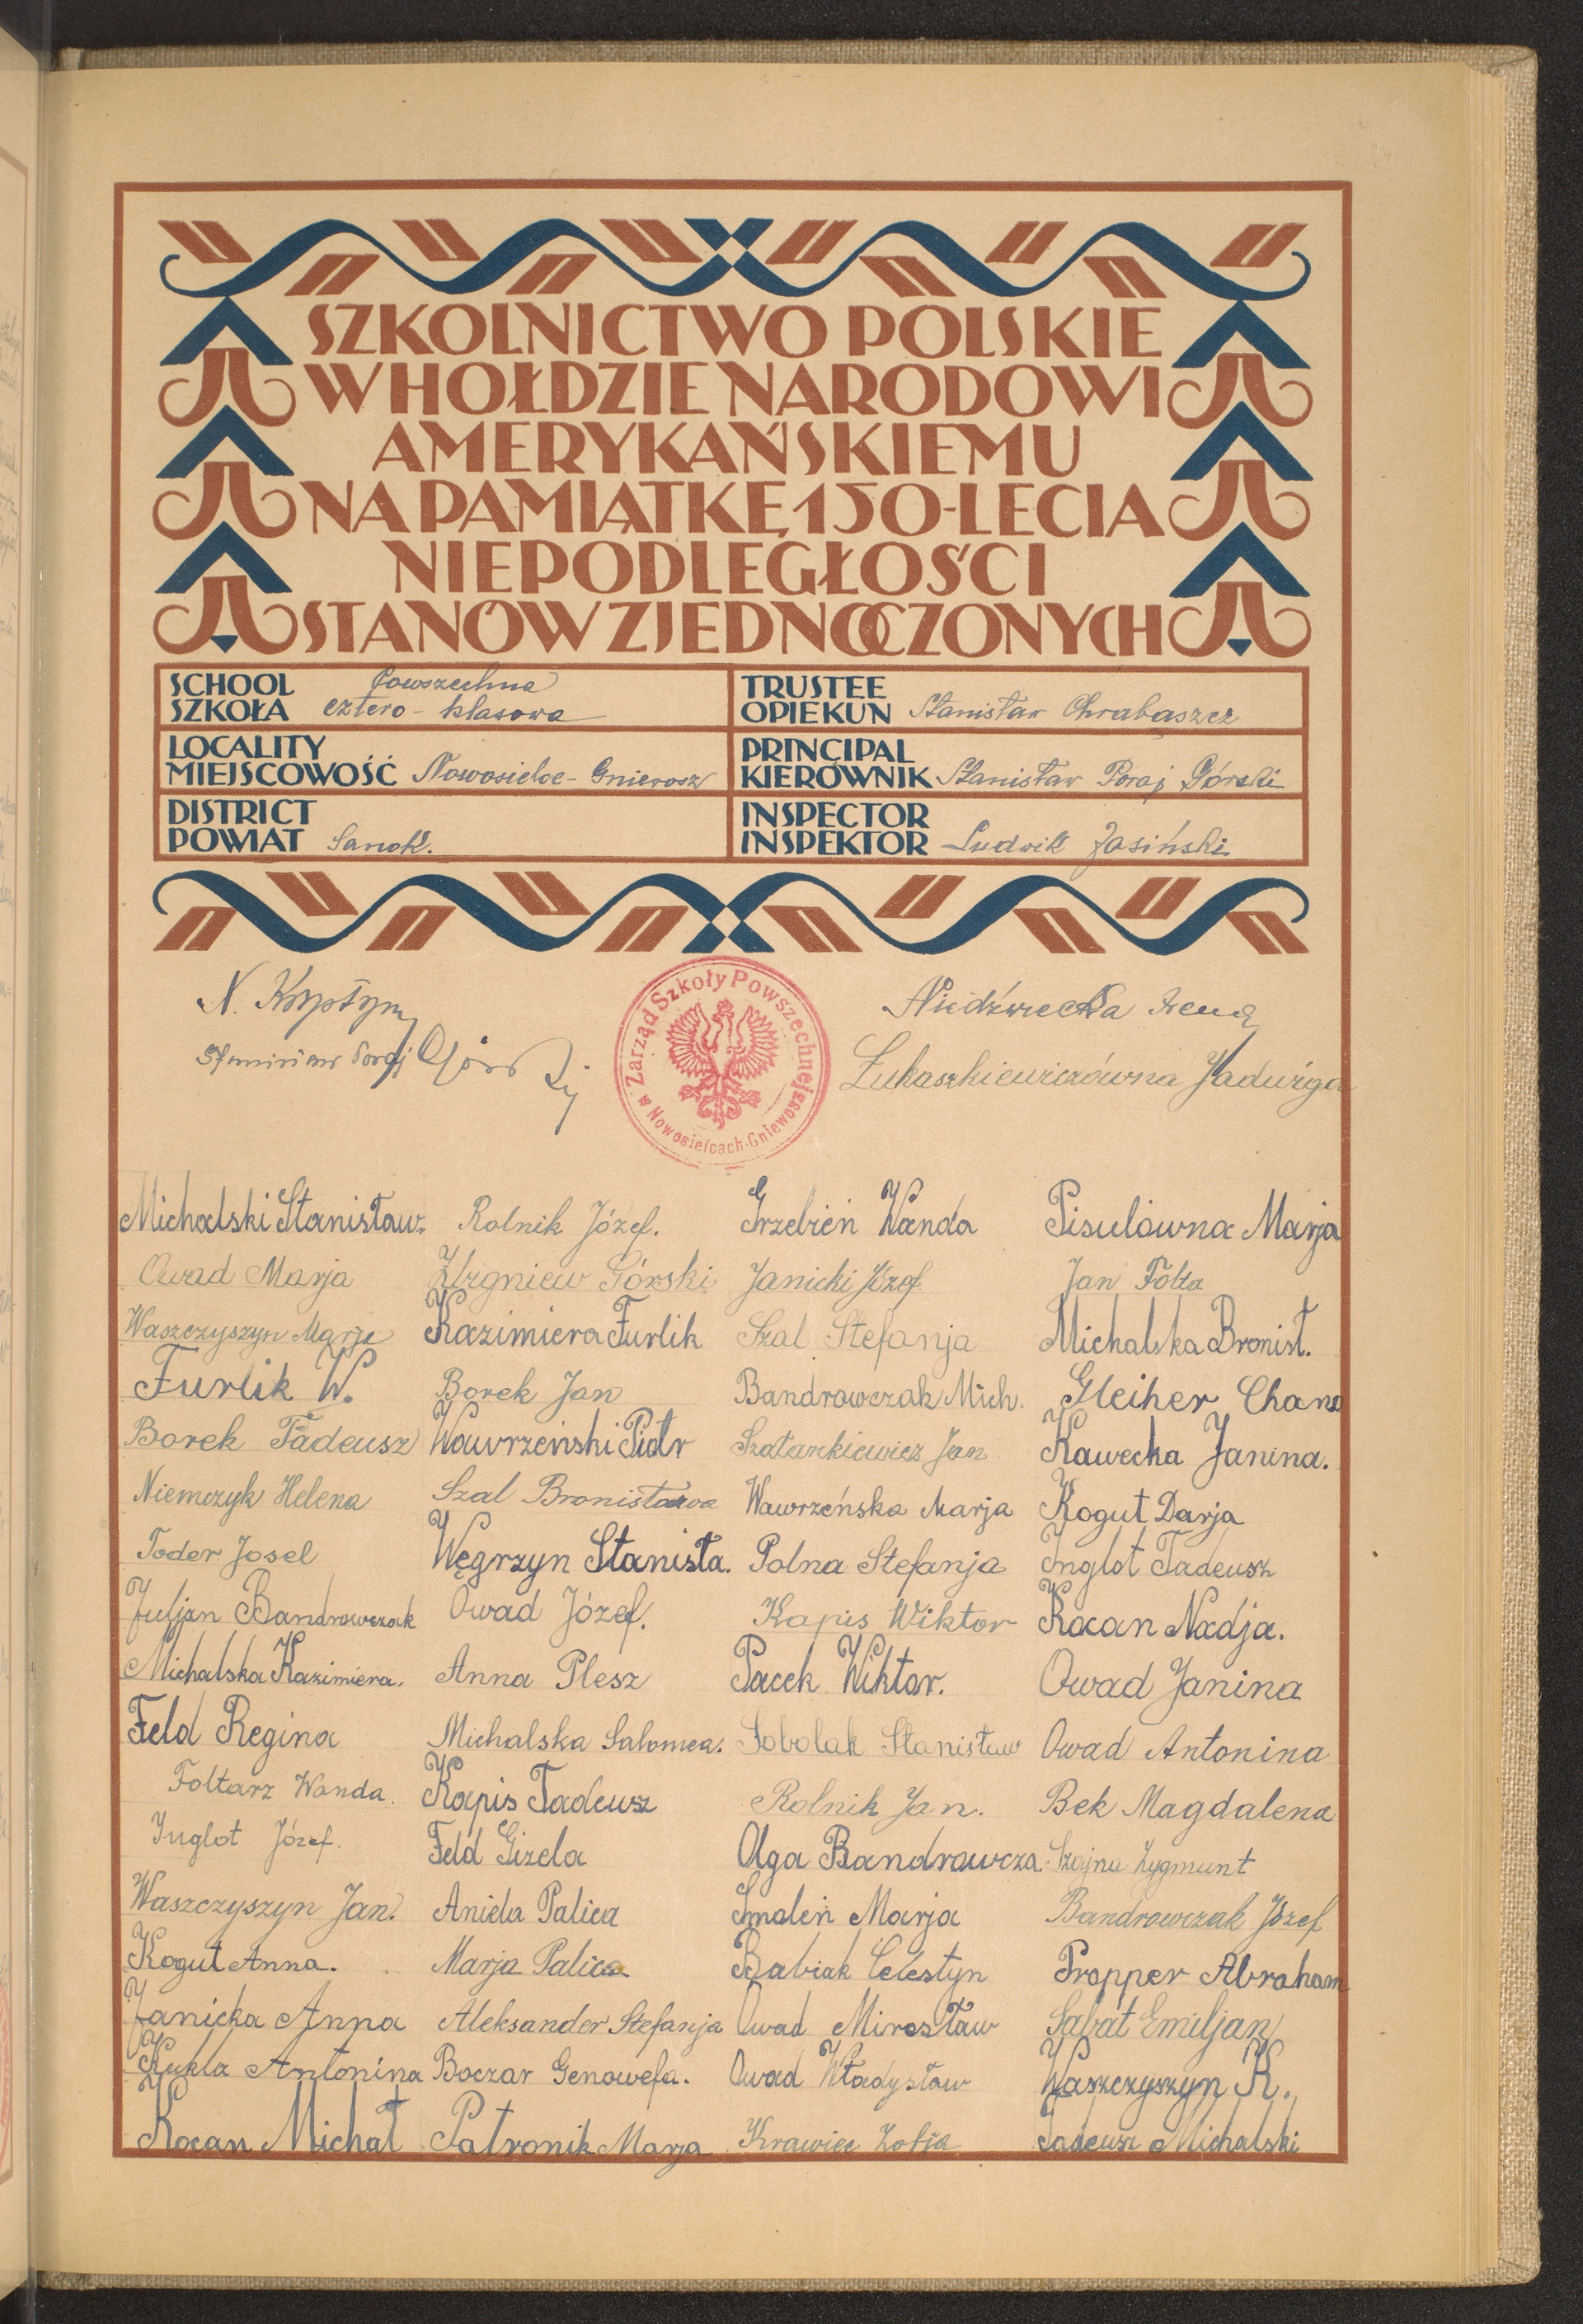 SZKOLNICTWO POLSKIE
W HOŁDZIE NARODOWI
AMERYKAŃSKIEMU
NA PAMIĄTKĘ 150-LECIA
NIEPODLEGŁOŚCI
STANÓW ZJEDNOCZONYCH
SCHOOL
SZKOŁA
Powszechna
cztero-klasowa
TRUSTEE
OPIEKUN
Stanisław Chrabąszcz
LOCALITY
MIEJSCOWOŚĆ
Nowosielce-Gniewosz
PRINCIPAL
KIEROWNIK
Stanisław Poraj Górski
DISTRICT
POWIAT
Sanok.
INSPECTOR
INSPEKTOR
Ludwik Jasiński
N.
Stanisław Poraj Górski
Zarząd Szkoły Powszechnej
w Nowosielcach-Gniewosz
Niedźwiecka Irena
Łukaszkiewiczówna Jadwiga
Michalski Stanisław. Rolnik Józef. Grzebień Wanda Pisulówna Marja
Owad Marja Zbigniew Górski Janicki Józef Jan Folta
Waszczyszyn Marja Kazimiera Furlik Szal Stefanja Michalska Bronisł.
Furlik W. Borek Jan Bandrowczak Mich. Gleiher Chana
Borek Tadeusz Wawrzeński Piotr Szatankiewicz Jan Kawecka Janina.
Niemczyk Helena Szal Bronisława Wawrzeńska Marja Kogut Darja
Toder Josel Węgrzyn Stanisła. Polna Stefanja Inglot Tadeusz
Juljan Bandrowczak Owad Józef. Kapis Wiktor Kocan Nadja.
Michalska Kazimiera. Anna Plesz Pacek Wiktor. Owad Janina
Feld Regina Michalska Salomea. Sobolak Stanisław Owad Antonina
Foltarz Wanda. Kapis Tadeusz Rolnik Jan. Bek Magdalena
Inglot Józef. Feld Gizela Olga Bandrowcza Szajna Zygmunt
Waszczyszyn Jan. Aniela Palica Smoleń Marja Bandrowczak Józef
Kogut Anna. Marja Palica Babiak Celestyn Propper Abraham
Janicka Anna Aleksander Stefanja Owad Mirosław Sabat Emiljan
Kukla Antonina Boczar Genowefa. Owad Władysław Waszczyszyn K.
Kocan Michał Patronik Marja Krawiec Zofja Tadeusz Michalski